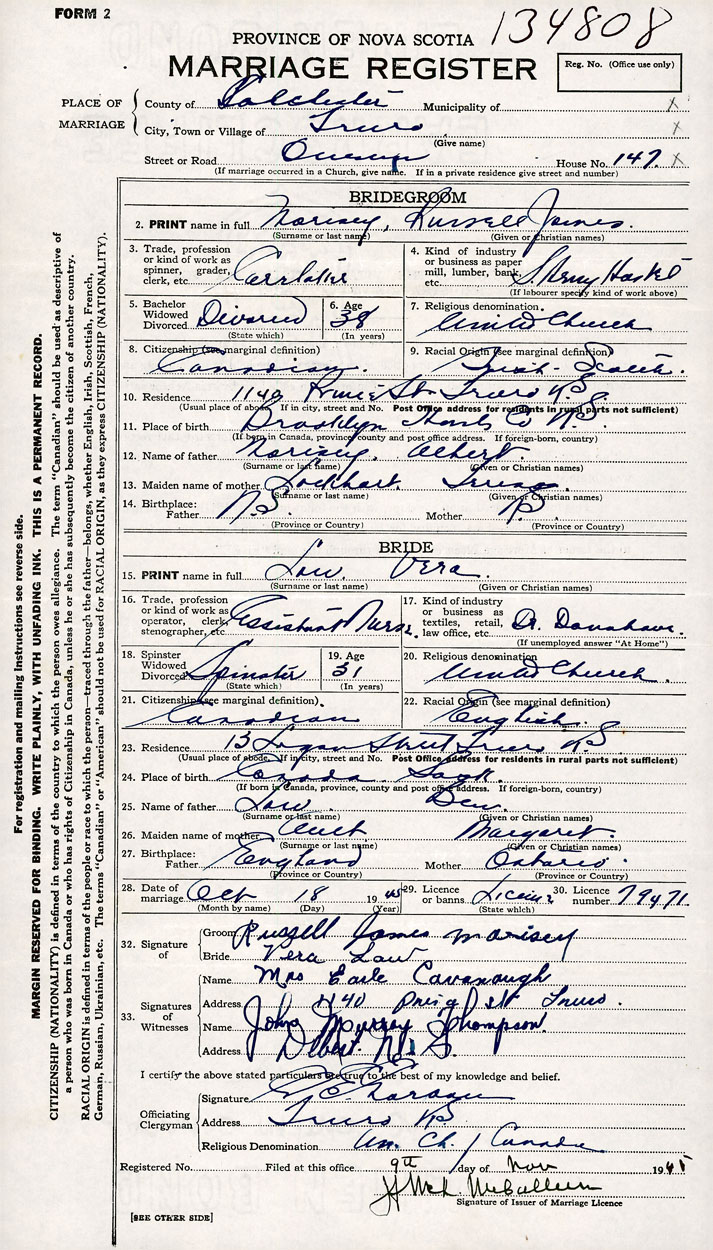 FORM 2
134808
PROVINCE OF NOVA SCOTIA
MARRIAGE REGISTER
Reg. No. (Office use only)
PLACE OF MARRIAGE
County of Colchester Municipality of X
City, Town or Village of Truro X
(Give name)
Street or Road Queen House No. 147 X
(If marriage occurred in a Church, give name. If in a private residence give street and number)
BRIDEGROOM
2. PRINT name in full Morisey, Russell James.
(Surname or last name) (Given or Christian names)
3. Trade, profession or kind of work as spinner, grader, clerk, etc.
4. Kind of industry or business as paper mill, lumber, bank, etc.
(If labourer specify kind of work above)
5. Bachelor Widowed Divorced Divorced
(State which)
6. Age 38
(In years)
7. Religious denomination. United Church
8. Citizenship (see marginal definition) Canadian.
9. Racial Origin (see marginal definition) Irish - Scotch.
10. Residence 1140 Prince St. Truro N.S.
(Usual place of abode. If in city, street and No. Post Office address for residents in rural parts not sufficient)
11. Place of birth Brooklyn Hants Co N.S.
(If born in Canada, province, county and post office address. If foreign-born, country)
12. Name of father Morisey. Albert.
(Surname or last name) (Given or Christian names)
13. Maiden name of mother Lockhart
(Surname or last name) (Given or Christian names)
14. Birthplace: Father N.S. Mother N.S.
(Province or Country) (Province or Country)
BRIDE
15. PRINT name in full Law Vera
(Surname or last name) (Given or Christian names)
16. Trade, profession or kind of work as operator, clerk, stenographer, etc. Assistant Nurse.
17. Kind of industry or business as textiles, retail, law office, etc. Dr. Donahave.
(If unemployed answer "At Home")
18. Spinster Widowed Divorced Spinster
(State which)
19. Age 31
(In years)
20. Religious denomination United Church.
21. Citizenship (see marginal definition). Canadian
22. Racial Origin (see marginal definition) English.
23. Residence 13 Logan Street Truro N.S
(Usual place of abode. If in city, street and No. Post Office address for residents in rural parts not sufficient)
24. Place of birth Canada Sask.
(If born in Canada, province, county and post office address. If foreign-born, country)
25. Name of father Law Ben
(Surname or last name) (Given or Christian names)
26. Maiden name of mother Margaret.
(Surname or last name) (Given or Christian names)
27. Birthplace: Father England Mother Ontario.
(Province or Country) (Province or Country)
28. Date of marriage Oct 18 1945
(Month by name) (Day) (Year)
29. Licence or banns. License
(State which)
30. Licence number 79471
32. Signature of
Groom Russell James Morisey
Bride Vera Law
33. Signatures of Witnesses
Name Mrs Earle Cavanaugh
Address 1140 Prince St Truro.
Name John Murray Thompson
Address Debert N.S.
I certify the above stated particulars are true to the best of my knowledge and belief.
Officiating Clergyman
Signature
Address Truro NS
Religious Denomination Un. Ch. / Canada
Registered No. Filed at this office 9th day of Nov 1945
Signature of Issuer of Marriage Licence
[SEE OTHER SIDE]
For registration and mailing instructions see reverse side.
MARGIN RESERVED FOR BINDING. WRITE PLAINLY, WITH UNFADING INK. THIS IS A PERMANENT RECORD.
CITIZENSHIP (NATIONALITY) is defined in terms of the country to which the person owes allegiance. The term "Canadian" should be used as descriptive of
a person who was born in Canada or who has rights of Citizenship in Canada, unless he or she has subsequently become the citizen of another country.
RACIAL ORIGIN is defined in terms of the people or race to which the person—traced through the father—belongs, whether English, Irish, Scottish, French,
German, Russian, Ukrainian, etc. The terms "Canadian" or "American" should not be used for RACIAL ORIGIN, as they express CITIZENSHIP (NATIONALITY).